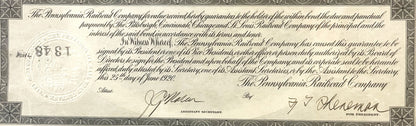 The Pennsylvania Railroad Company for value received hereby guarantees to the holder of the within bond the due and punctual
payment by The Pittsburgh, Cincinnati, Chicago and St. Louis Railroad Company of the principal and the
interest of the said bond in accordance with its terms and tenor.
In Witness Whereof, The Pennsylvania Railroad Company has caused this guarantee to be
signed by its President or one of its Vice Presidents, or other officer or person duly authorized by its Board of
Directors to sign for the President and upon behalf of the Company and its corporate seal to be hereunto
affixed, duly attested by its Secretary, one of its Assistant Secretaries, or by the Assistant to the Secretary,
this 25th day of June 1920.
1348
The Pennsylvania Railroad Company
Attest:
By
ASSISTANT SECRETARY.
FOR PRESIDENT.